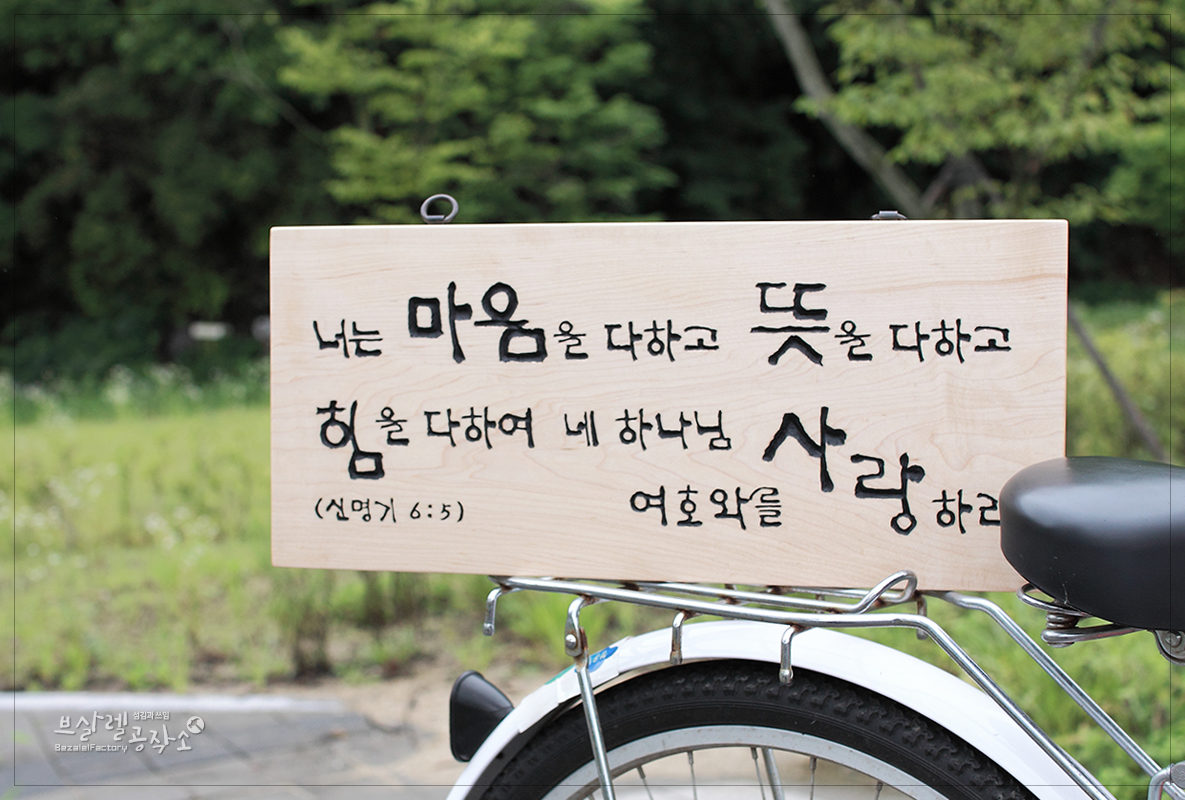 너는 마음을 다하고 뜻을 다하고
힘을 다하여 네 하나님
여호와를 사랑하라
(신명기 6:5)
섬김과쓰임
브살렐공작소
BezalelFactory